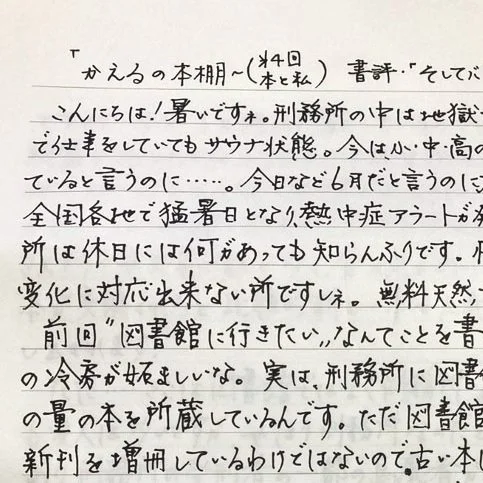 「かえるの本棚〜(第4回 本と私) 書評・「そしてバ
こんにちは!暑いですネ。刑務所の中は地獄
で仕事をしていてもサウナ状態。今は、小・中・高の
ていると言うのに……。今日など6月だと言うのに
全国各地で猛暑日となり、熱中症アラートが
所は休日には何があっても知らんふりです。
変化に対応出来ない所ですしネ。無料天然
前回〝図書館に行きたい〟なんてことを書
の冷房が妬ましいな。実は、刑務所に図書
の量の本を所蔵しているんです。ただ図書館
新刊を増冊しているわけではないので、古い本